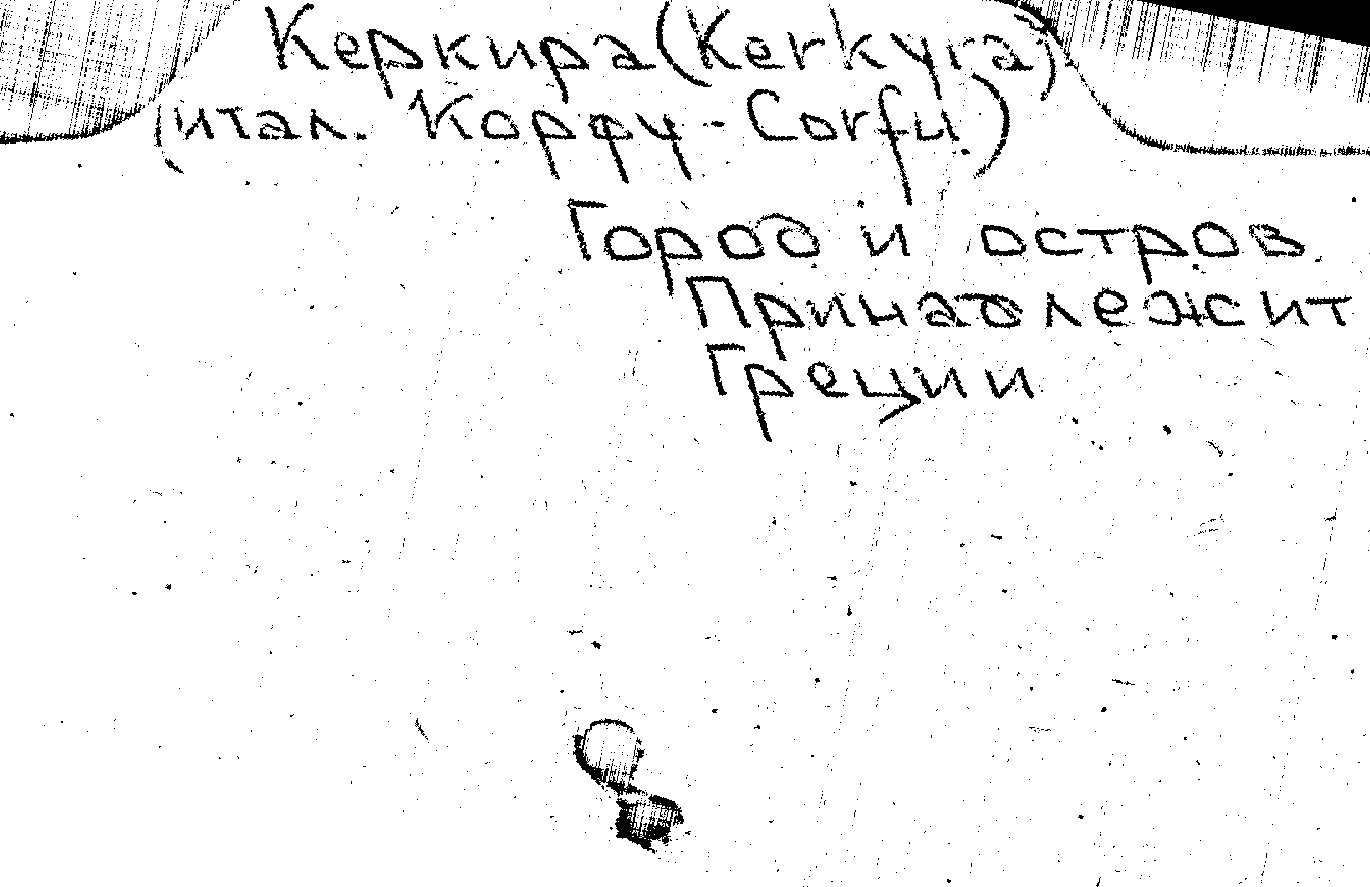 Керкира (Kerkyra)
(итал. Корфу - Corfu.)
Город и остров
Принадлежит
Греции